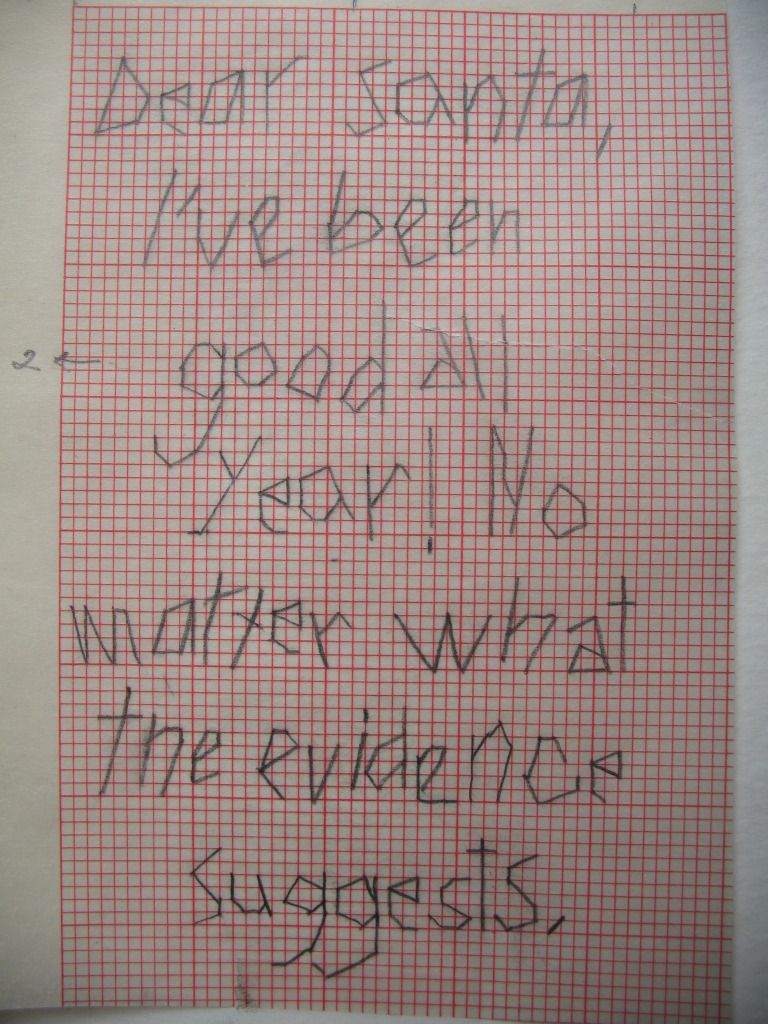 Dear Santa,
I've been
good all
2 ←
Year! No
matter what
the evidence
suggests,